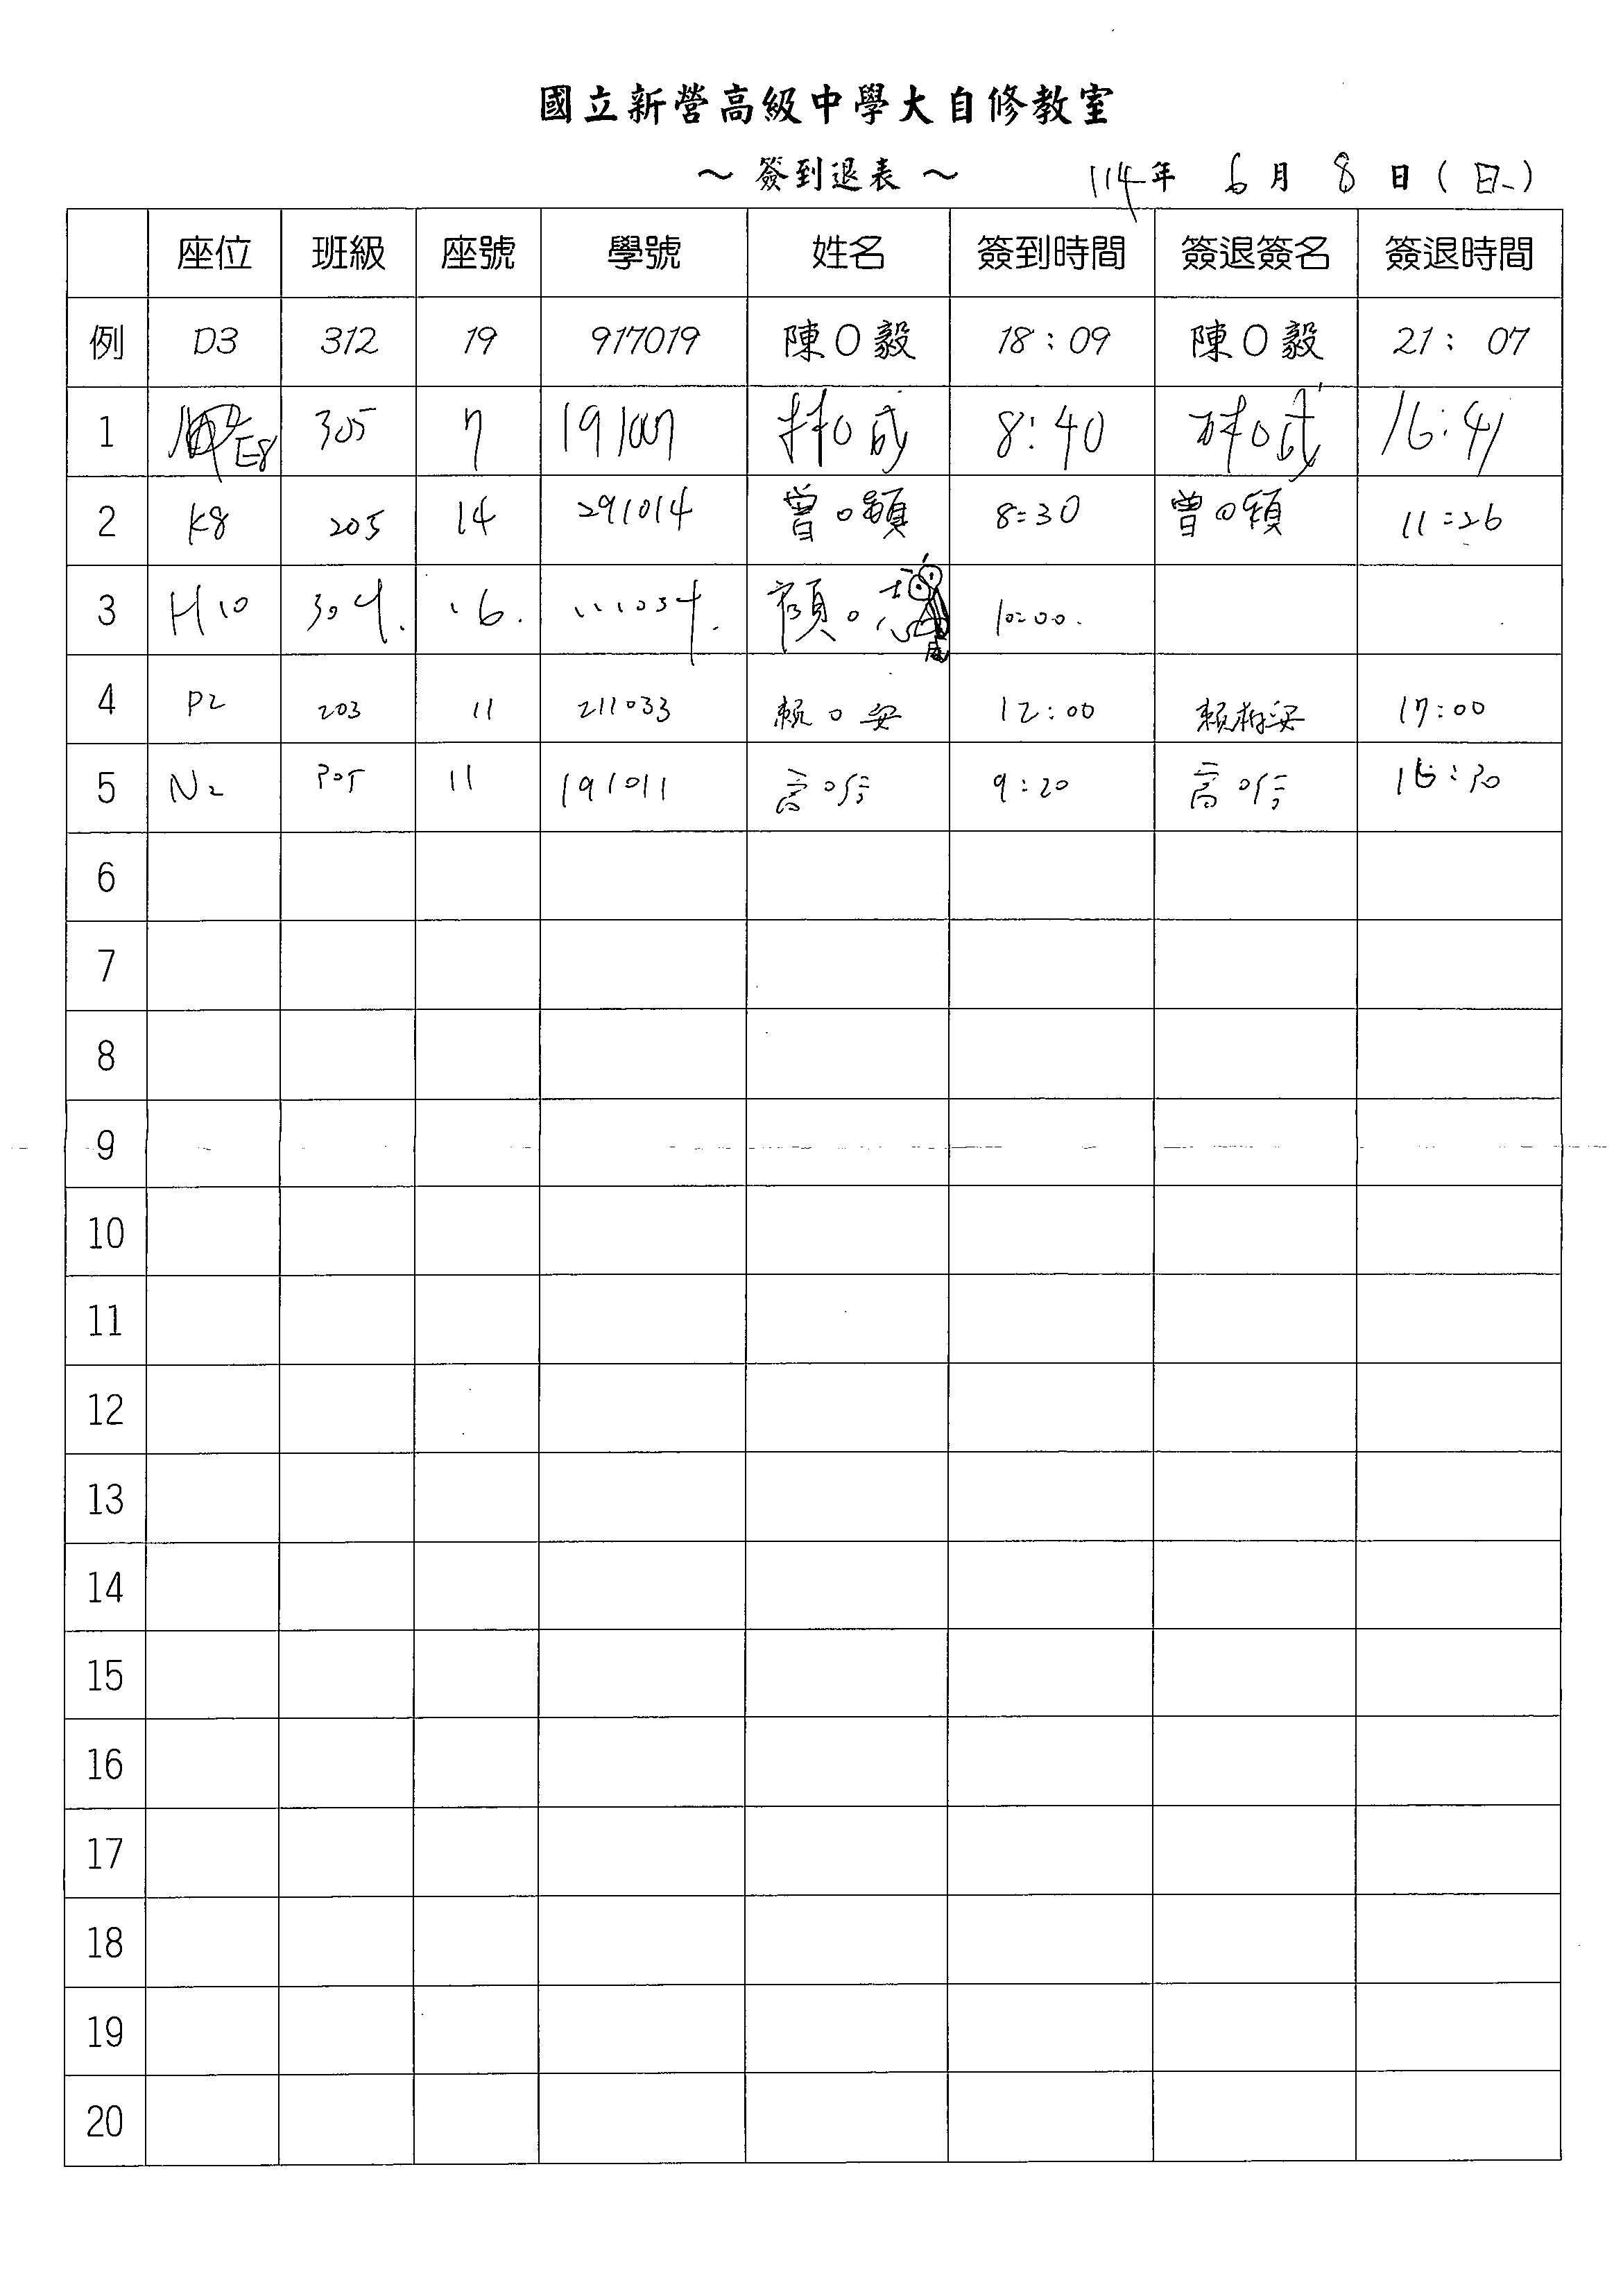 國立新營高級中學大自修教室
～ 簽到退表 ～ 114年 6月 8日(日)
座位 班級 座號 學號 姓名 簽到時間 簽退簽名 簽退時間
例 D3 312 19 917019 陳O毅 18:09 陳O毅 21:07
1 E8 305 7 191007 林O成 8:40 林O成 16:41
2 K8 205 14 291014 曾O穎 8:30 曾O穎 11:26
3 H10 304. 16. 111034. 顏O 10:00.
4 P2 203 11 211033 賴O安 12:00 賴柏安 17:00
5 N2 305 11 191011 高O 9:20 高O 16:30
6
7
8
9
10
11
12
13
14
15
16
17
18
19
20